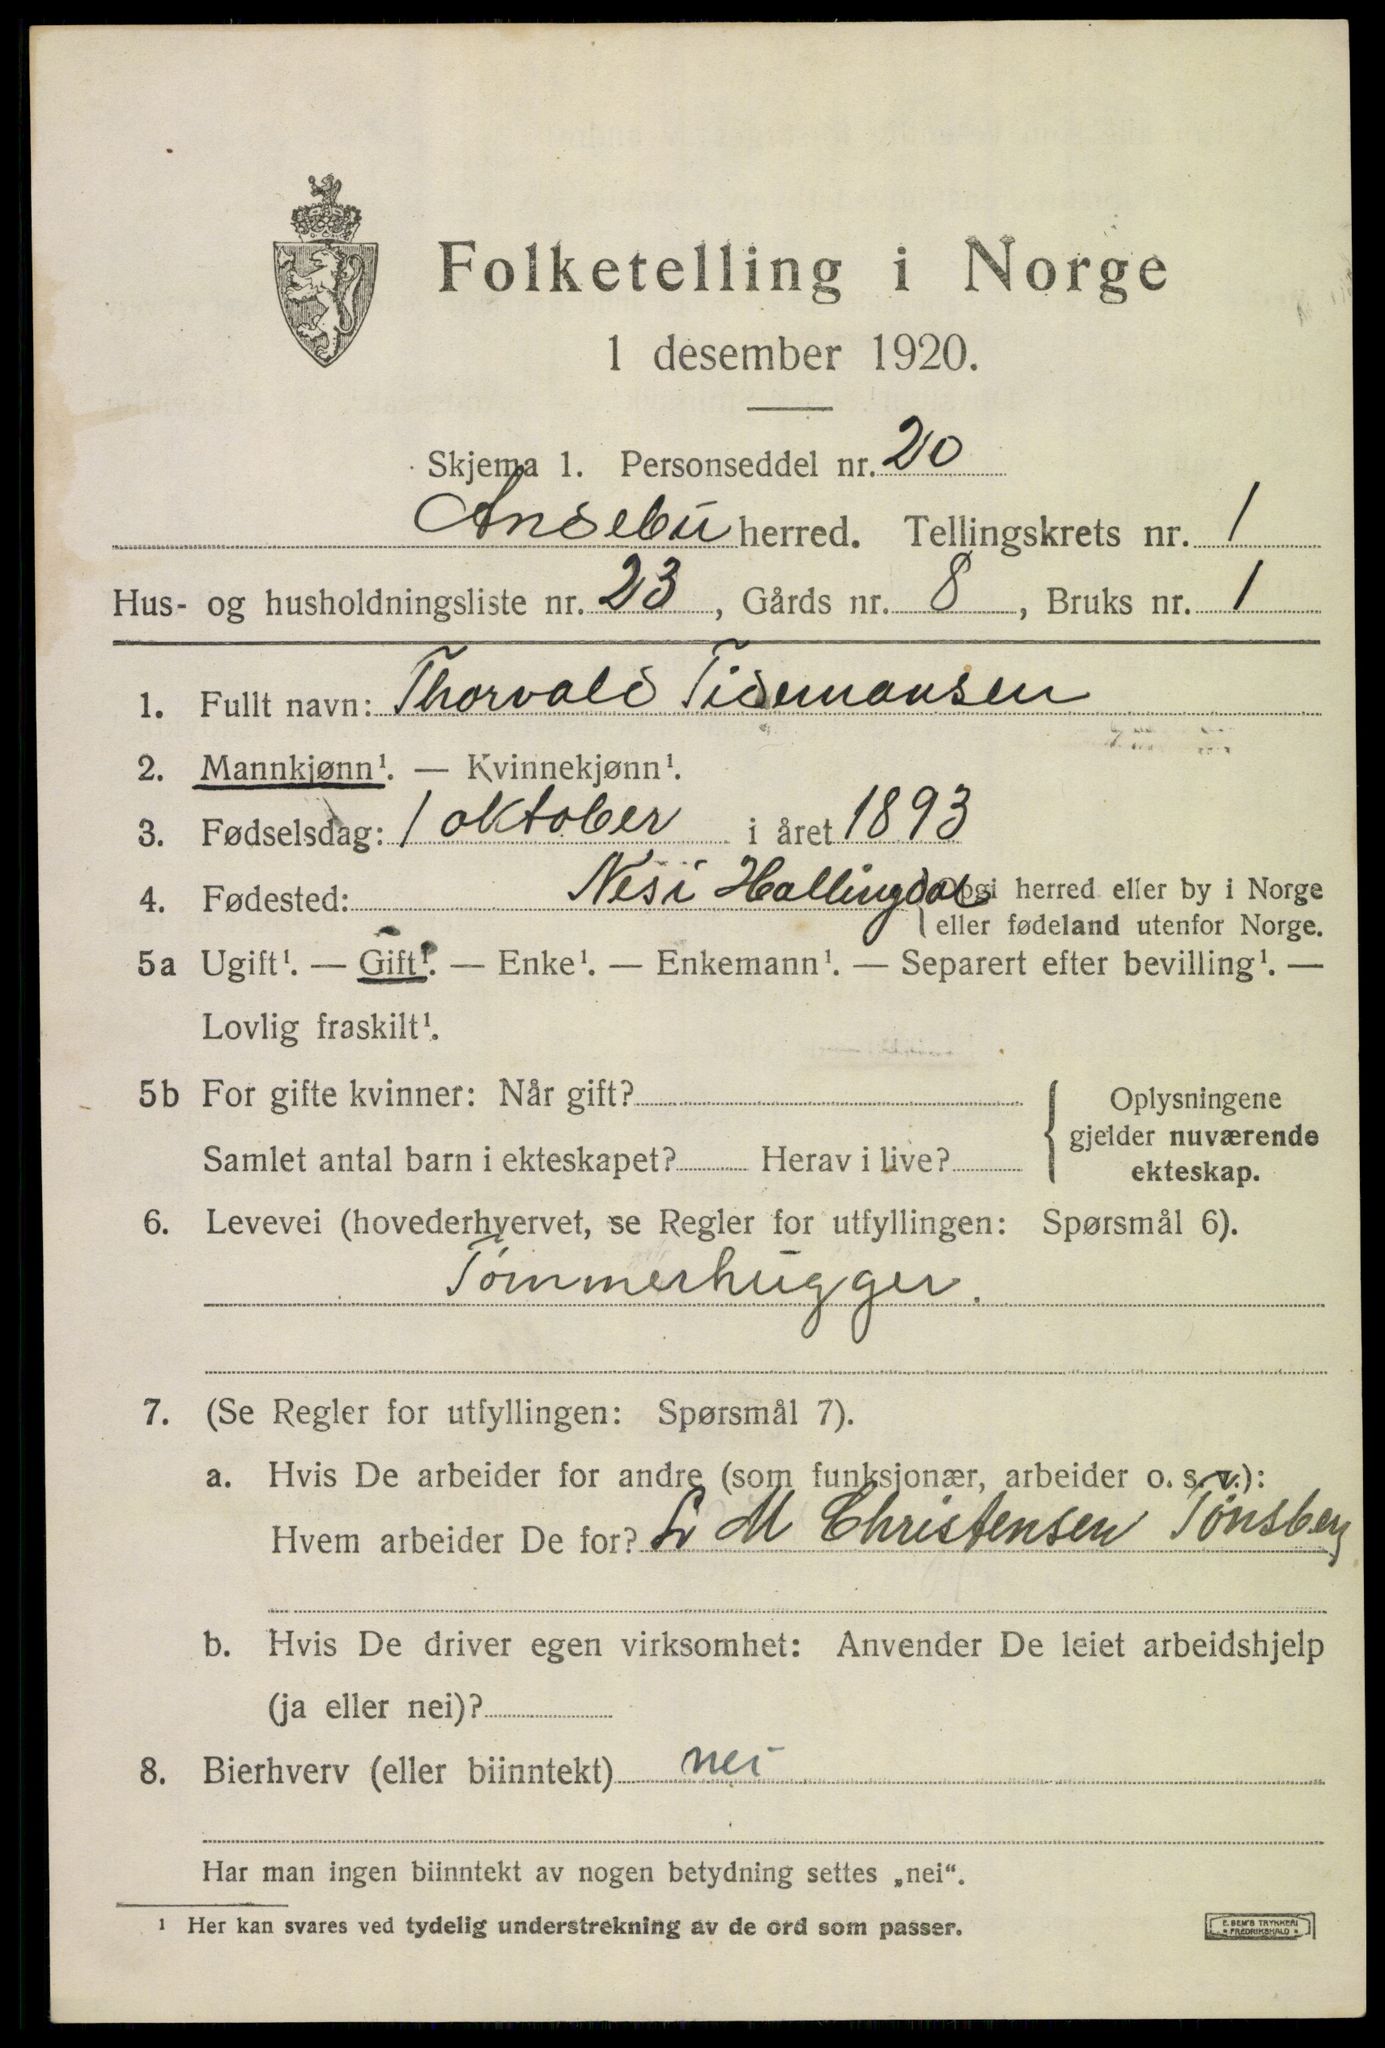 Folketelling i Norge
1 desember 1920.
Skjema 1. Personseddel nr. 20
Andebu herred. Tellingskrets nr. 1
Hus- og husholdningsliste nr. 23, Gårds nr. 8, Bruks nr. 1
1. Fullt navn: Thorvald Tidemansen
2. Mannkjønn¹. — Kvinnekjønn¹.
3. Fødselsdag: 1 oktober i året 1893
4. Fødested: Nes i Hallingdal { Opgi herred eller by i Norge
eller fødeland utenfor Norge.
5a Ugift¹. — Gift¹. — Enke¹. — Enkemann¹. — Separert efter bevilling¹. —
Lovlig fraskilt¹.
5b For gifte kvinner: Når gift?
Samlet antal barn i ekteskapet? Herav i live?
{ Oplysningene
gjelder nuværende
ekteskap.
6. Levevei (hovederhvervet, se Regler for utfyllingen: Spørsmål 6).
Tømmerhugger.
7. (Se Regler for utfyllingen: Spørsmål 7).
a. Hvis De arbeider for andre (som funksjonær, arbeider o. s. v.):
Hvem arbeider De for? M Christensen Tønsberg
b. Hvis De driver egen virksomhet: Anvender De leiet arbeidshjelp
(ja eller nei)?
8. Bierhverv (eller biinntekt) nei
Har man ingen biinntekt av nogen betydning settes „nei“.
¹ Her kan svares ved tydelig understrekning av de ord som passer.
E. SEM'S TRYKKERI
FREDRIKSHALD